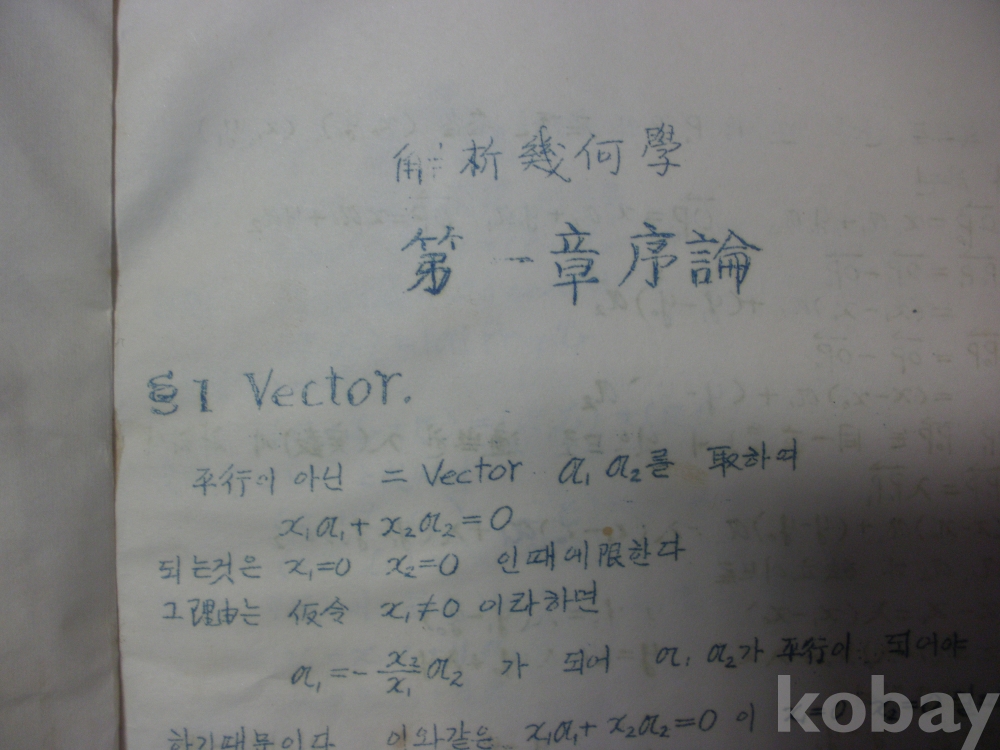 解析幾何學
第一章序論
§1 Vector.
平行이 아닌 二 Vector 𝔞₁ 𝔞₂를 取하여
x₁𝔞₁+x₂𝔞₂=0
되는것은 x₁=0 x₂=0 인때에限한다
그理由는 仮令 x₁≠0 이라하면
𝔞₁=-x₂/x₁ 𝔞₂ 가 되어 𝔞₁ 𝔞₂가 平行이 되어야
하기때문이다 이와같은 x₁𝔞₁+x₂𝔞₂=0 이
kobay